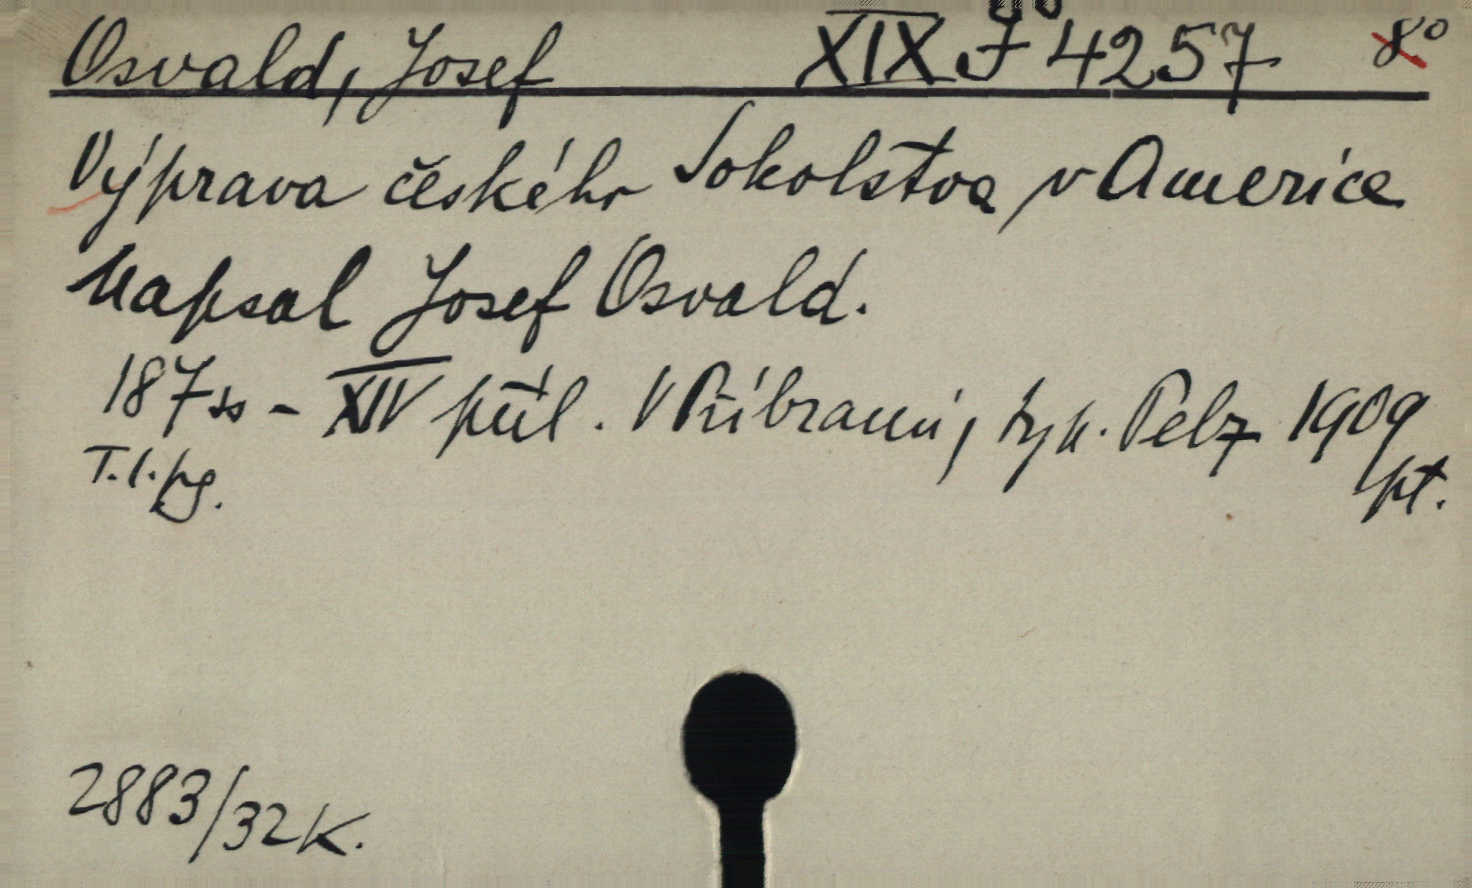 Osvald, Josef XIX J 4257 8°
Výprava českého Sokolstva v Americe
Napsal Josef Osvald.
187 ss - XIV příl. V Příbrami, typ. Pelz 1909
T. l. pg. pt.
2883/32 K.